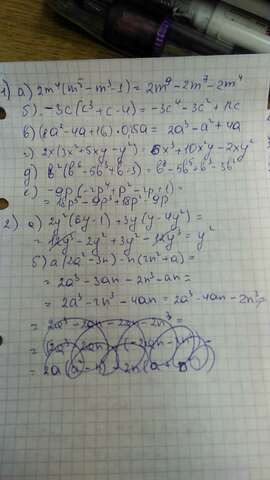 1) а) 2m⁴(m⁵-m³-1) = 2m⁹-2m⁷-2m⁴
б) -3c(c³+c-4) = -3c⁴-3c²+12c
в) (8a²-4a+16)·0,25a = 2a³-a²+4a
г) 2x(3x²+5xy-y²) = 6x³+10x²y-2xy²
д) b²(b⁶-5b³+b-3) = b⁸-5b⁵+b³-3b²
е) -9p(-2p⁴+p²-2p+1) =
= 18p⁵-9p³+18p²-9p
2) а) 2y²(6y-1)+3y(y-4y²) =
= 12y³-2y²+3y²-12y³= y²
б) a(2a²-3n)-n(2n²+a) =
= 2a³-3an-2n³-an=
= 2a³-2n³-4an= 2a³-4an-2n³